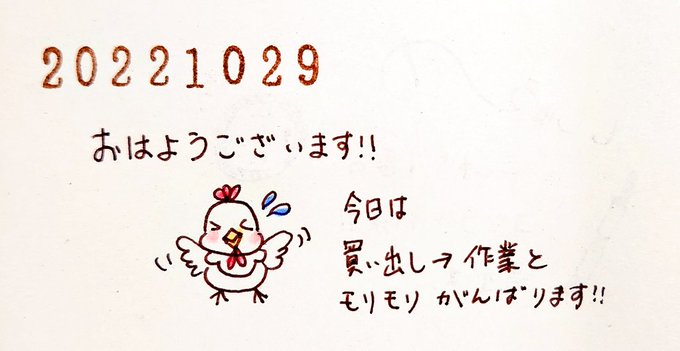 20221029
おはようございます!!
今日は
買い出し→作業と
モリモリ がんばります!!